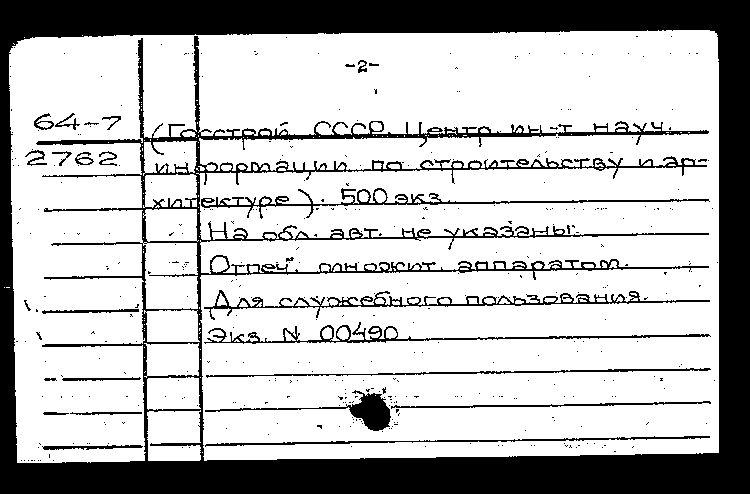 -2-
64-7 (Госстрой СССР. Центр. ин-т науч.
2762 информации по строительству и ар-
хитектуре). 500 экз.
На обл. авт. не указаны.
Отпеч. множит. аппаратом.
Для служебного пользования.
Экз. N 00490.